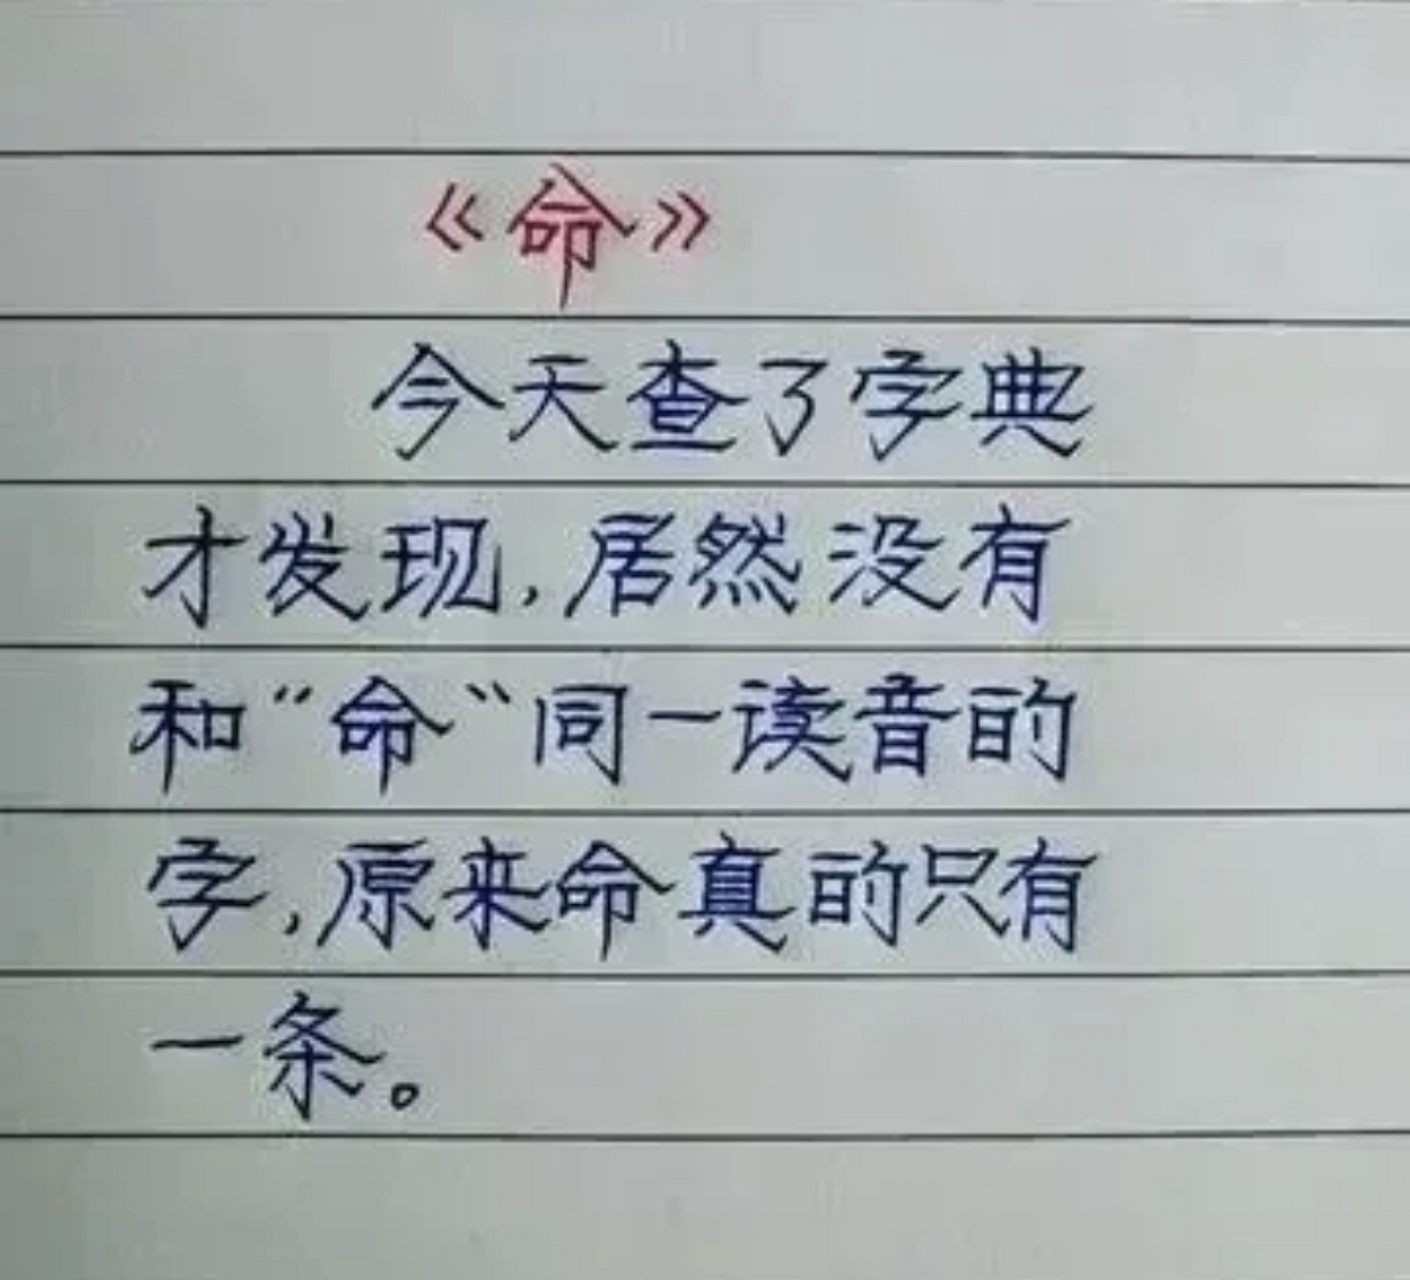 《命》
今天查了字典
才发现,居然没有
和“命“同一读音的
字,原来命真的只有
一条。